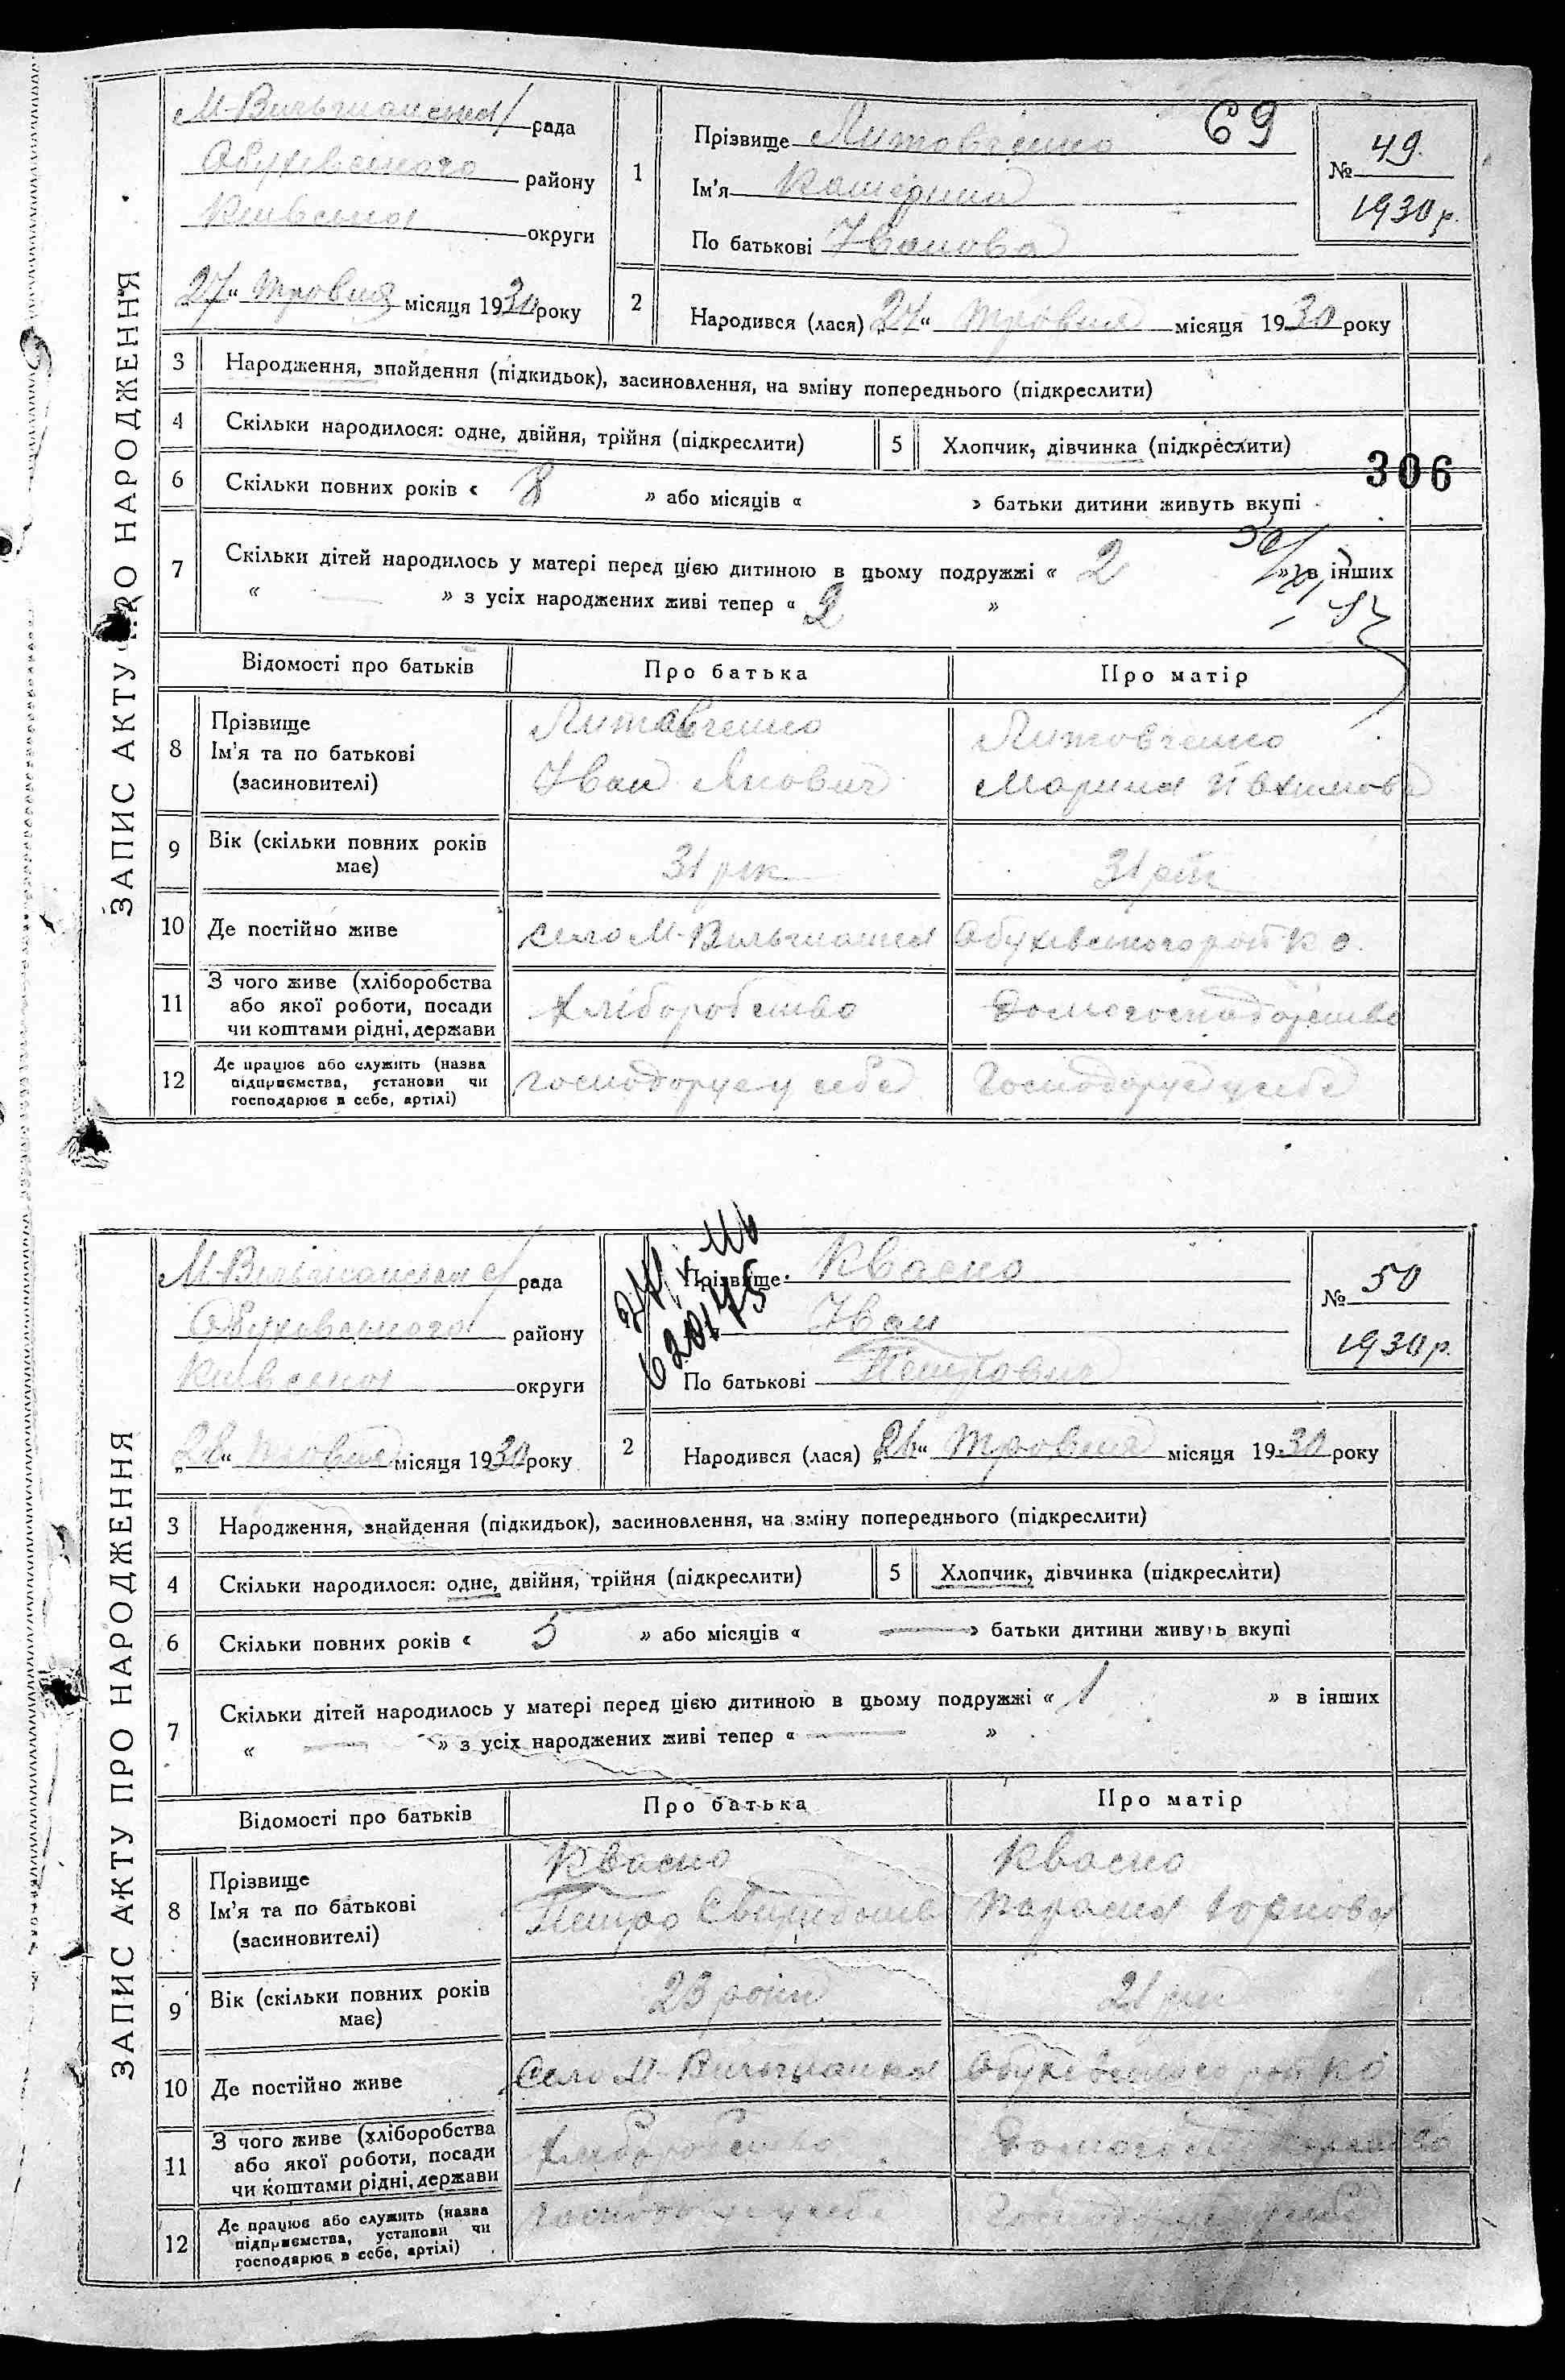 ЗАПИС АКТУ ПРО НАРОДЖЕННЯ
М-Вильшанська с/рада
Обухівського району
Київська округи
27 "Травня місяця 1930 року
1
Прізвище Литовченко
69
Ім'я Катерина
По батькові Іванова
№ 49.
1930 р.
2
Народився (лася) 24 " Травня місяця 1930 року
3 Народження, знайдення (підкидьок), засиновлення, на зміну попереднього (підкреслити)
4 Скільки народилося: одне, двійня, трійня (підкреслити)
5 Хлопчик, дівчинка (підкреслити)
306
6 Скільки повних років « 8 » або місяців « » батьки дитини живуть вкупі
7 Скільки дітей народилось у матері перед цією дитиною в цьому подружжі « 2 » в інших
« — » з усіх народжених живі тепер « 2 »
Відомості про батьків
Про батька
Про матір
8 Прізвище
Ім'я та по батькові
(засиновителі)
Литовченко
Іван Якович
Литовченко
Марина
9 Вік (скільки повних років має)
31 рік
31 рік
10 Де постійно живе
село М-Вильшанка
Обухівського рой К о.
11 З чого живе (хліборобства
або якої роботи, посади
чи коштами рідні, держави
Хліборобство
Домогосподарство
12 Де працює або служить (назва
підприємства, установи чи
господарює в себе, артілі)
господорує у себе
Господорує у себе
ЗАПИС АКТУ ПРО НАРОДЖЕННЯ
М-Вильшанська с/рада
Обухівського району
Київська округи
„28 " Травня місяця 1930 року
Прізвище Кваско
Іван
По батькові Петрович
№ 50
1930 р.
2
Народився (лася) „26 " Травня місяця 1930 року
3 Народження, знайдення (підкидьок), засиновлення, на зміну попереднього (підкреслити)
4 Скільки народилося: одне, двійня, трійня (підкреслити)
5 Хлопчик, дівчинка (підкреслити)
6 Скільки повних років « 5 » або місяців « — » батьки дитини живуть вкупі
7 Скільки дітей народилось у матері перед цією дитиною в цьому подружжі « 1 » в інших
« — » з усіх народжених живі тепер « — »
Відомості про батьків
Про батька
Про матір
8 Прізвище
Ім'я та по батькові
(засиновителі)
Кваско
Петро
Кваско
Параска
9 Вік (скільки повних років має)
23 роки
21 рік
10 Де постійно живе
Село М-Вильшанка
Обухівського рой К о
11 З чого живе (хліборобства
або якої роботи, посади
чи коштами рідні, держави
Хліборобство
Домогосподарство
12 Де працює або служить (назва
підприємства, установи чи
господарює в себе, артілі)
господорує у себе
Господорує у себе